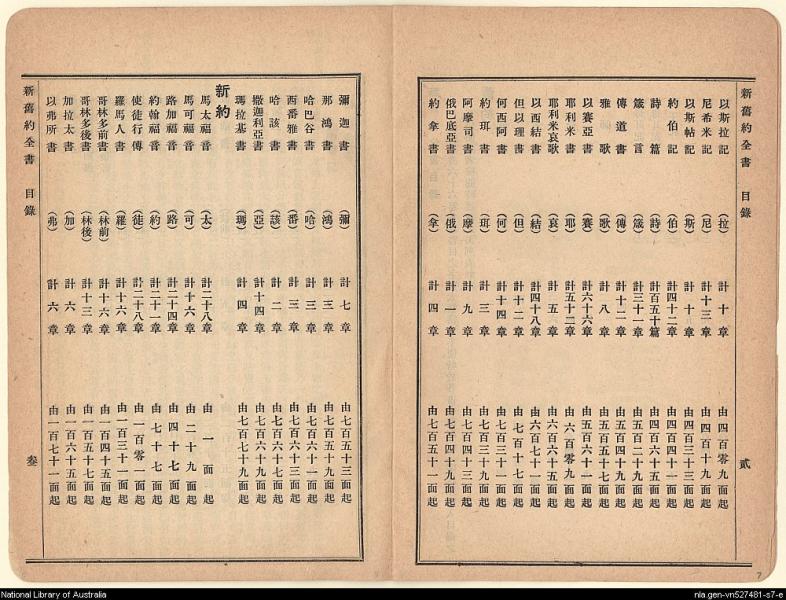 新舊約全書 目錄 貳
以斯拉記 (拉) 計十章 由四百零九面起
尼希米記 (尼) 計十三章 由四百十九面起
以斯帖記 (斯) 計十章 由四百三十三面起
約伯記 (伯) 計四十二章 由四百四十一面起
詩篇 (詩) 計百五十篇 由四百六十五面起
箴言 (箴) 計三十一章 由五百二十九面起
傳道書 (傳) 計十二章 由五百四十九面起
雅歌 (歌) 計八章 由五百五十七面起
以賽亞書 (賽) 計六十六章 由五百六十一面起
耶利米書 (耶) 計五十二章 由六百零九面起
耶利米哀歌 (哀) 計五章 由六百六十五面起
以西結書 (結) 計四十八章 由六百七十一面起
但以理書 (但) 計十二章 由七百十七面起
何西阿書 (何) 計十四章 由七百三十一面起
約珥書 (珥) 計三章 由七百三十九面起
阿摩司書 (摩) 計九章 由七百四十三面起
俄巴底亞書 (俄) 計一章 由七百四十九面起
約拿書 (拿) 計四章 由七百五十一面起
彌迦書 (彌) 計七章 由七百五十三面起
那鴻書 (鴻) 計三章 由七百五十九面起
哈巴谷書 (哈) 計三章 由七百六十一面起
西番雅書 (番) 計三章 由七百六十三面起
哈該書 (該) 計二章 由七百六十七面起
撒迦利亞書 (亞) 計十四章 由七百六十九面起
瑪拉基書 (瑪) 計四章 由七百七十九面起
新約
馬太福音 (太) 計二十八章 由一面起
馬可福音 (可) 計十六章 由二十九面起
路加福音 (路) 計二十四章 由四十七面起
約翰福音 (約) 計二十一章 由七十七面起
使徒行傳 (徒) 計二十八章 由一百零一面起
羅馬人書 (羅) 計十六章 由一百三十一面起
哥林多前書 (林前) 計十六章 由一百四十五面起
哥林多後書 (林後) 計十三章 由一百五十七面起
加拉太書 (加) 計六章 由一百六十五面起
以弗所書 (弗) 計六章 由一百七十一面起
新舊約全書 目錄 叁
7
National Library of Australia
nla.gen-vn527481-s7-e